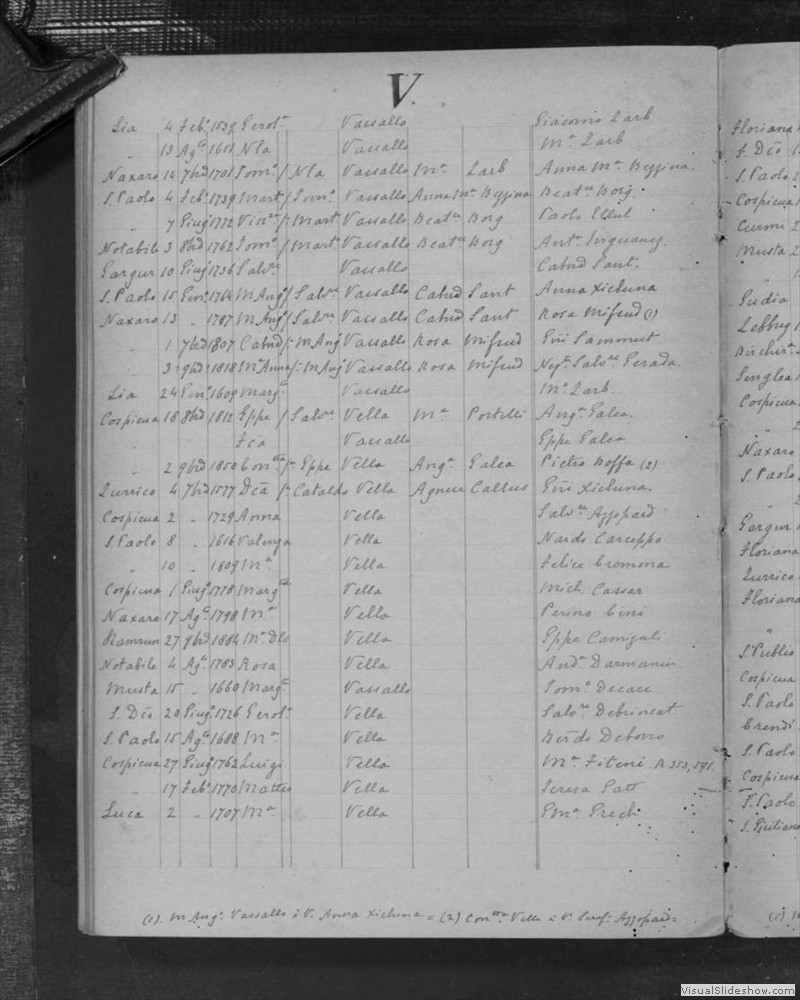 V.
Lia 4 Feb. 1639 Gerol.ᵃ Vassallo Giacomo Zarb
" 13 Ag. 1651 Nla Vassallo M.ᵃ Zarb
Naxaro 14 7brᵉ 1701 Tom.º / Nla Vassallo M.ᵃ Zarb Anna M.ᵃ Bezzina
S. Paolo 4 Feb. 1739 Mart. / Tom.º Vassallo Anna M.ᵃ Bezzina Beat.ᶜᵉ Borg
" 7 Giug. 1772 Vin.ᵒ /: Mart. Vassallo Beat.ᶜᵉ Borg Paolo Ellul
Notabile 3 8brᵉ 1762 Tom.º / Mart. Vassallo Beat.ᶜᵉ Borg Ant.ᵃ Inguanez
Gargur 10 Giug. 1736 Salv.ʳᵉ Vassallo Catnᵈ Sant.
S. Paolo 15 Gen. 1764 M Ang. / Salv.ʳᵉ Vassallo Catnᵈ Sant Anna Xicluna
Naxaro 13 " 1787 M Ang. / Salv.ʳᵉ Vassallo Catnᵈ Sant Rosa Mifsud (1)
" 1 7brᵉ 1807 Catnᵈ /: M Ang. Vassallo Rosa Mifsud Gio Sammut
" 3 9brᵉ 1818 M.ᵃ Anna /: M Ang. Vassallo Rosa Mifsud Salv.ʳᵉ Gerada
Lia 24 Gen. 1609 Marg.ᵃ Vassallo M.º Zarb.
Cospicua 18 8brᵉ 1812 Gppe / Salv.ʳᵉ Vella M.ᵃ Portelli Ang.ᵃ Galea
Fca Vassallo Gppe Galea
" 2 9brᵉ 1850 Con.ᵗᵗᵃ /: Gppe Vella Ang.ᵃ Galea Pietro Boffa (2)
Zurrico 4 7brᵉ 1577 Dca /: Cataldo Vella Agnese Callus Gio Xicluna.
Cospicua 2 " 1729 Anna Vella Salv.ʳᵉ Azzopard
S. Paolo 8 " 1616 Valenza Vella Nardo Caruppo
" 10 " 1809 M.ᵃ Vella Felice Cremona
Cospicua 1 Giug. 1778 Marg.ᵗᵃ Vella Mich. Cassar
Naxaro 17 Ag. 1798 M.ᵃ Vella Perino Cini
Hamrun 27 9brᵉ 1884 M.ᵃ Dls Vella Gppe Camiguli
Notabile 4 Ag. 1783 Rosa Vella And.ᵃ Darmanin
Musta 15 " 1660 Marg.ᵃ Vassallo Tom.º Decace
S. Dco 20 Giug. 1726 Gerol.ᵃ Vella Salv.ʳᵉ Debrincat
S. Paolo 15 Ag. 1688 M.ᵃ Vella Berdo Debono
Cospicua 27 Giug. 1762 Luigi Vella M.ᵃ Fiteni A 353, 591.
" 17 Feb. 1770 Matteo Vella Teresa Patt
Luca 2 " 1707 M.ᵃ Vella Grech
(1). M Ang. Vassallo è V. Anna Xicluna = (2) Con.ᵗᵗᵃ Vella è V. Azzopardi
Floriana
S. Dco
S. Paolo
Cospicua
Curmi
Musta
Gudia
Zebbug
Birchir.ᵃ
Senglea
Cospicua
"
Naxaro
S. Paolo
Gargur
Floriana
Zurrico
Floriana
"
S. Publio
Cospicua
S. Paolo
Crendi
S. Paolo
Cospicua
S. Paolo
S. Giuliano
VisualSlideshow.com